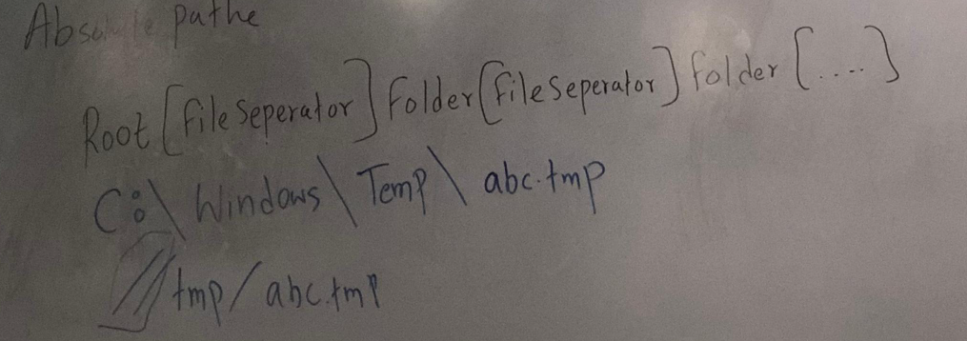 Absolute pathe
Root [file Seperator] Folder [file Seperator] folder [....]
C:\ Windows \ Temp \ abc.tmp
/tmp/abc.tmp